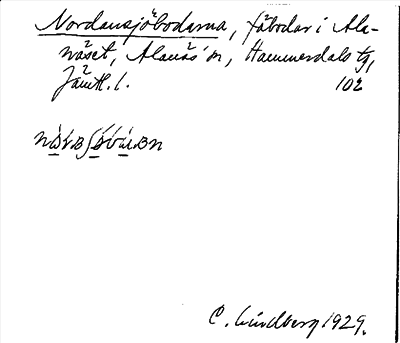 Nordansjöbodarna, fäbodar i Ala-
näset, Alanäs sn, Hammerdals tg,
Jämtl. l. 102
C. Lindberg 1929.